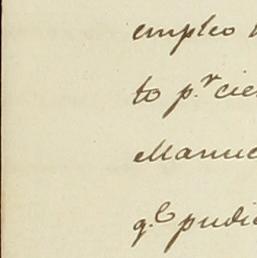 empleo
to p.r cie
Manue
q.e pudi